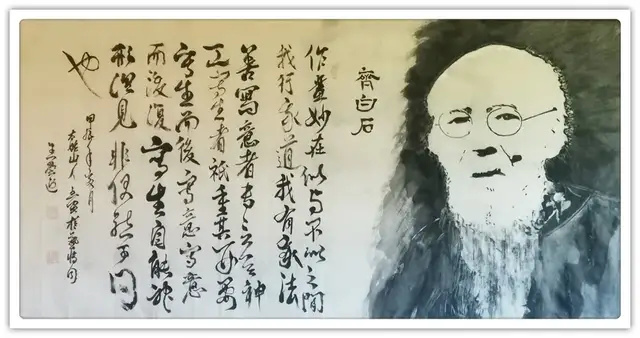 齊白石
作畫妙在似與不似之間
我行我道我有我法
善寫意者專言其神
工寫生者祇重其形要
寫生而後寫意寫意
而後復寫生自能神
形俱見非偶然可
也
甲辰年
山人